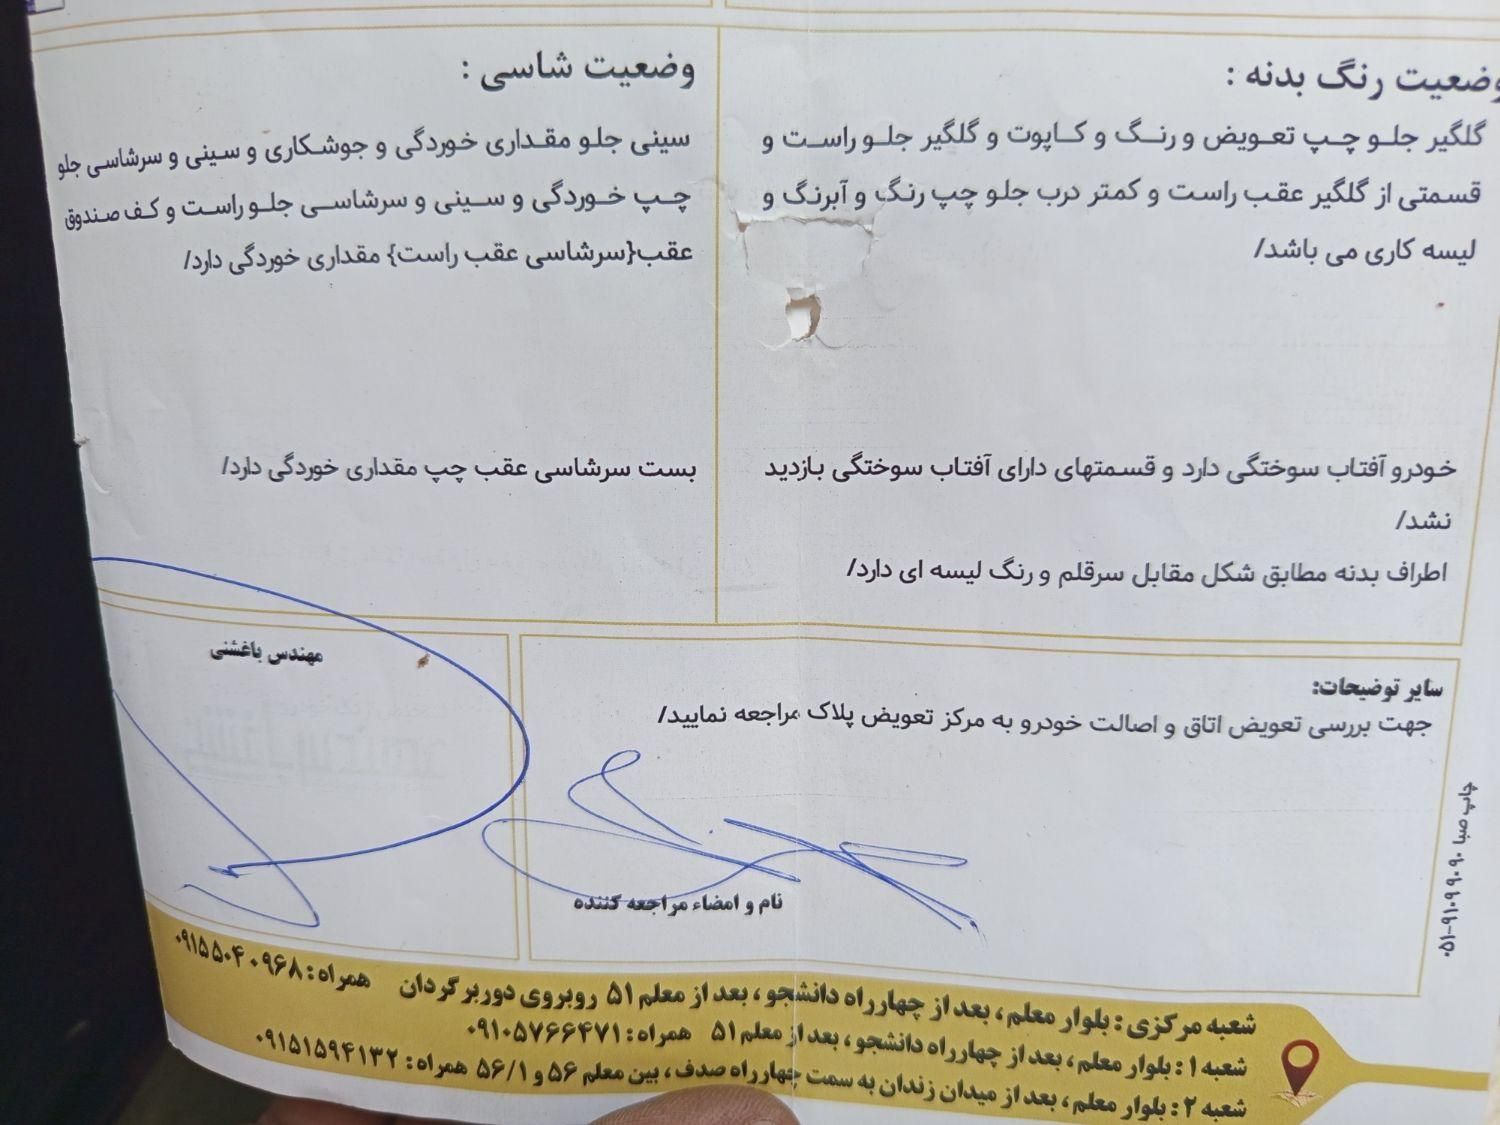 وضعیت رنگ بدنه :
گلگیر جلو چپ تعویض و رنگ و کاپوت و گلگیر جلو راست و
قسمتی از گلگیر عقب راست و کمتر درب جلو چپ رنگ و آبرنگ و
لیسه کاری می باشد/
خودرو آفتاب سوختگی دارد و قسمتهای دارای آفتاب سوختگی بازدید
نشد/
اطراف بدنه مطابق شکل مقابل سرقلم و رنگ لیسه ای دارد/
وضعیت شاسی :
سینی جلو مقداری خوردگی و جوشکاری و سینی و سرشاسی جلو
چپ خوردگی و سینی و سرشاسی جلو راست و کف صندوق
عقب{سرشاسی عقب راست} مقداری خوردگی دارد/
بست سرشاسی عقب چپ مقداری خوردگی دارد/
سایر توضیحات:
جهت بررسی تعویض اتاق و اصالت خودرو به مرکز تعویض پلاک مراجعه نمایید/
نام و امضاء مراجعه کننده
مهندس باغشنی
چاپ صبا ۹۰ ۹۰۹ ۹۱-۰۵۱
شعبه مرکزی : بلوار معلم ، بعد از چهارراه دانشجو ، بعد از معلم ۵۱ روبروی دوربرگردان همراه : ۰۹۱۵۵۰۴۰۹۶۸
شعبه ۱ : بلوار معلم ، بعد از چهارراه دانشجو ، بعد از معلم ۵۱ همراه : ۰۹۱۰۵۷۶۶۴۷۱
شعبه ۲ : بلوار معلم ، بعد از میدان زندان به سمت چهارراه صدف ، بین معلم ۵۶ و ۵۶/۱ همراه : ۰۹۱۵۱۵۹۴۱۳۲